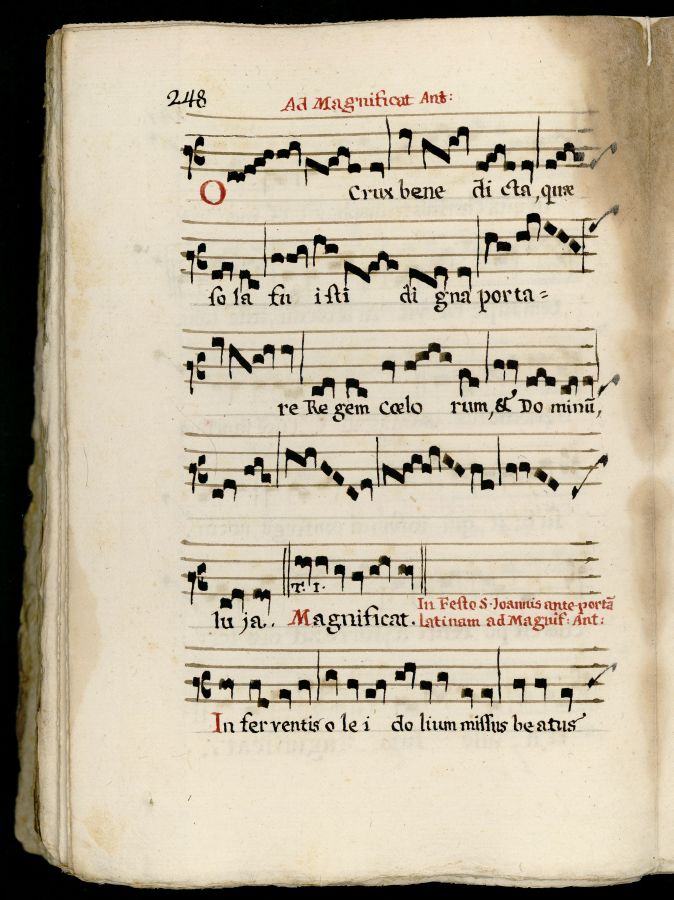 248 Ad Magnificat Ant:
O Crux bene di cta, quæ
so la fu isti di gna porta=
re Re gem Cœlo rum, & Do minū,
lu ja. T. 1. Magnificat. In Festo S. Joannis ante portā
Latinam ad Magnif: Ant:
In fer ventis o le i do lium missus beatus